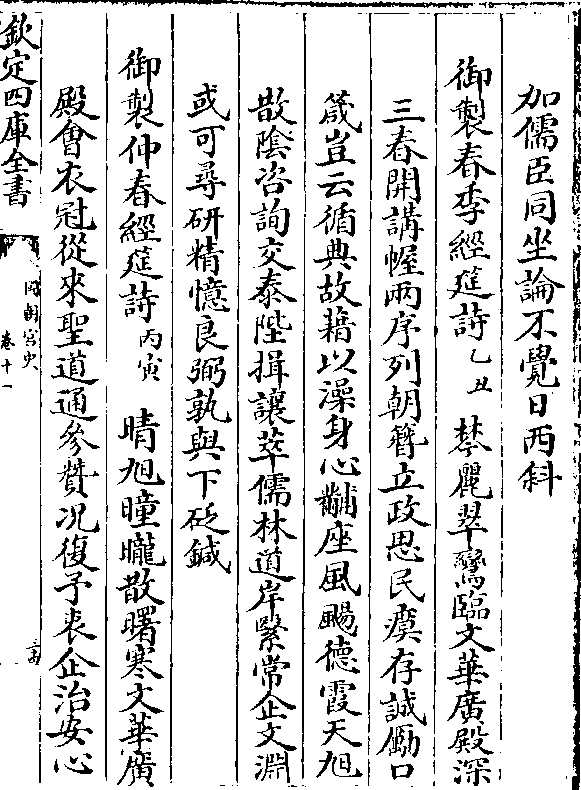 加儒臣同坐論不覺日西斜
御製春季經筵詩乙丑　棽麗翠鸞臨文華廣殿深
三春開講幄兩序列朝簪立政思民瘼存誠勵口
箴豈云循典故藉以澡身心黼座風颺德霞天旭
散陰咨詢交泰陛揖讓萃儒林道岸繄常企文淵
或可尋研精憶良弼孰與下砭鍼
御製仲春經筵詩丙寅　晴旭曈曨散曙寒文華廣
殿會衣冠從來聖道通參賛况復予衷企治安心
欽定四庫全書
國朝宮史
卷十一